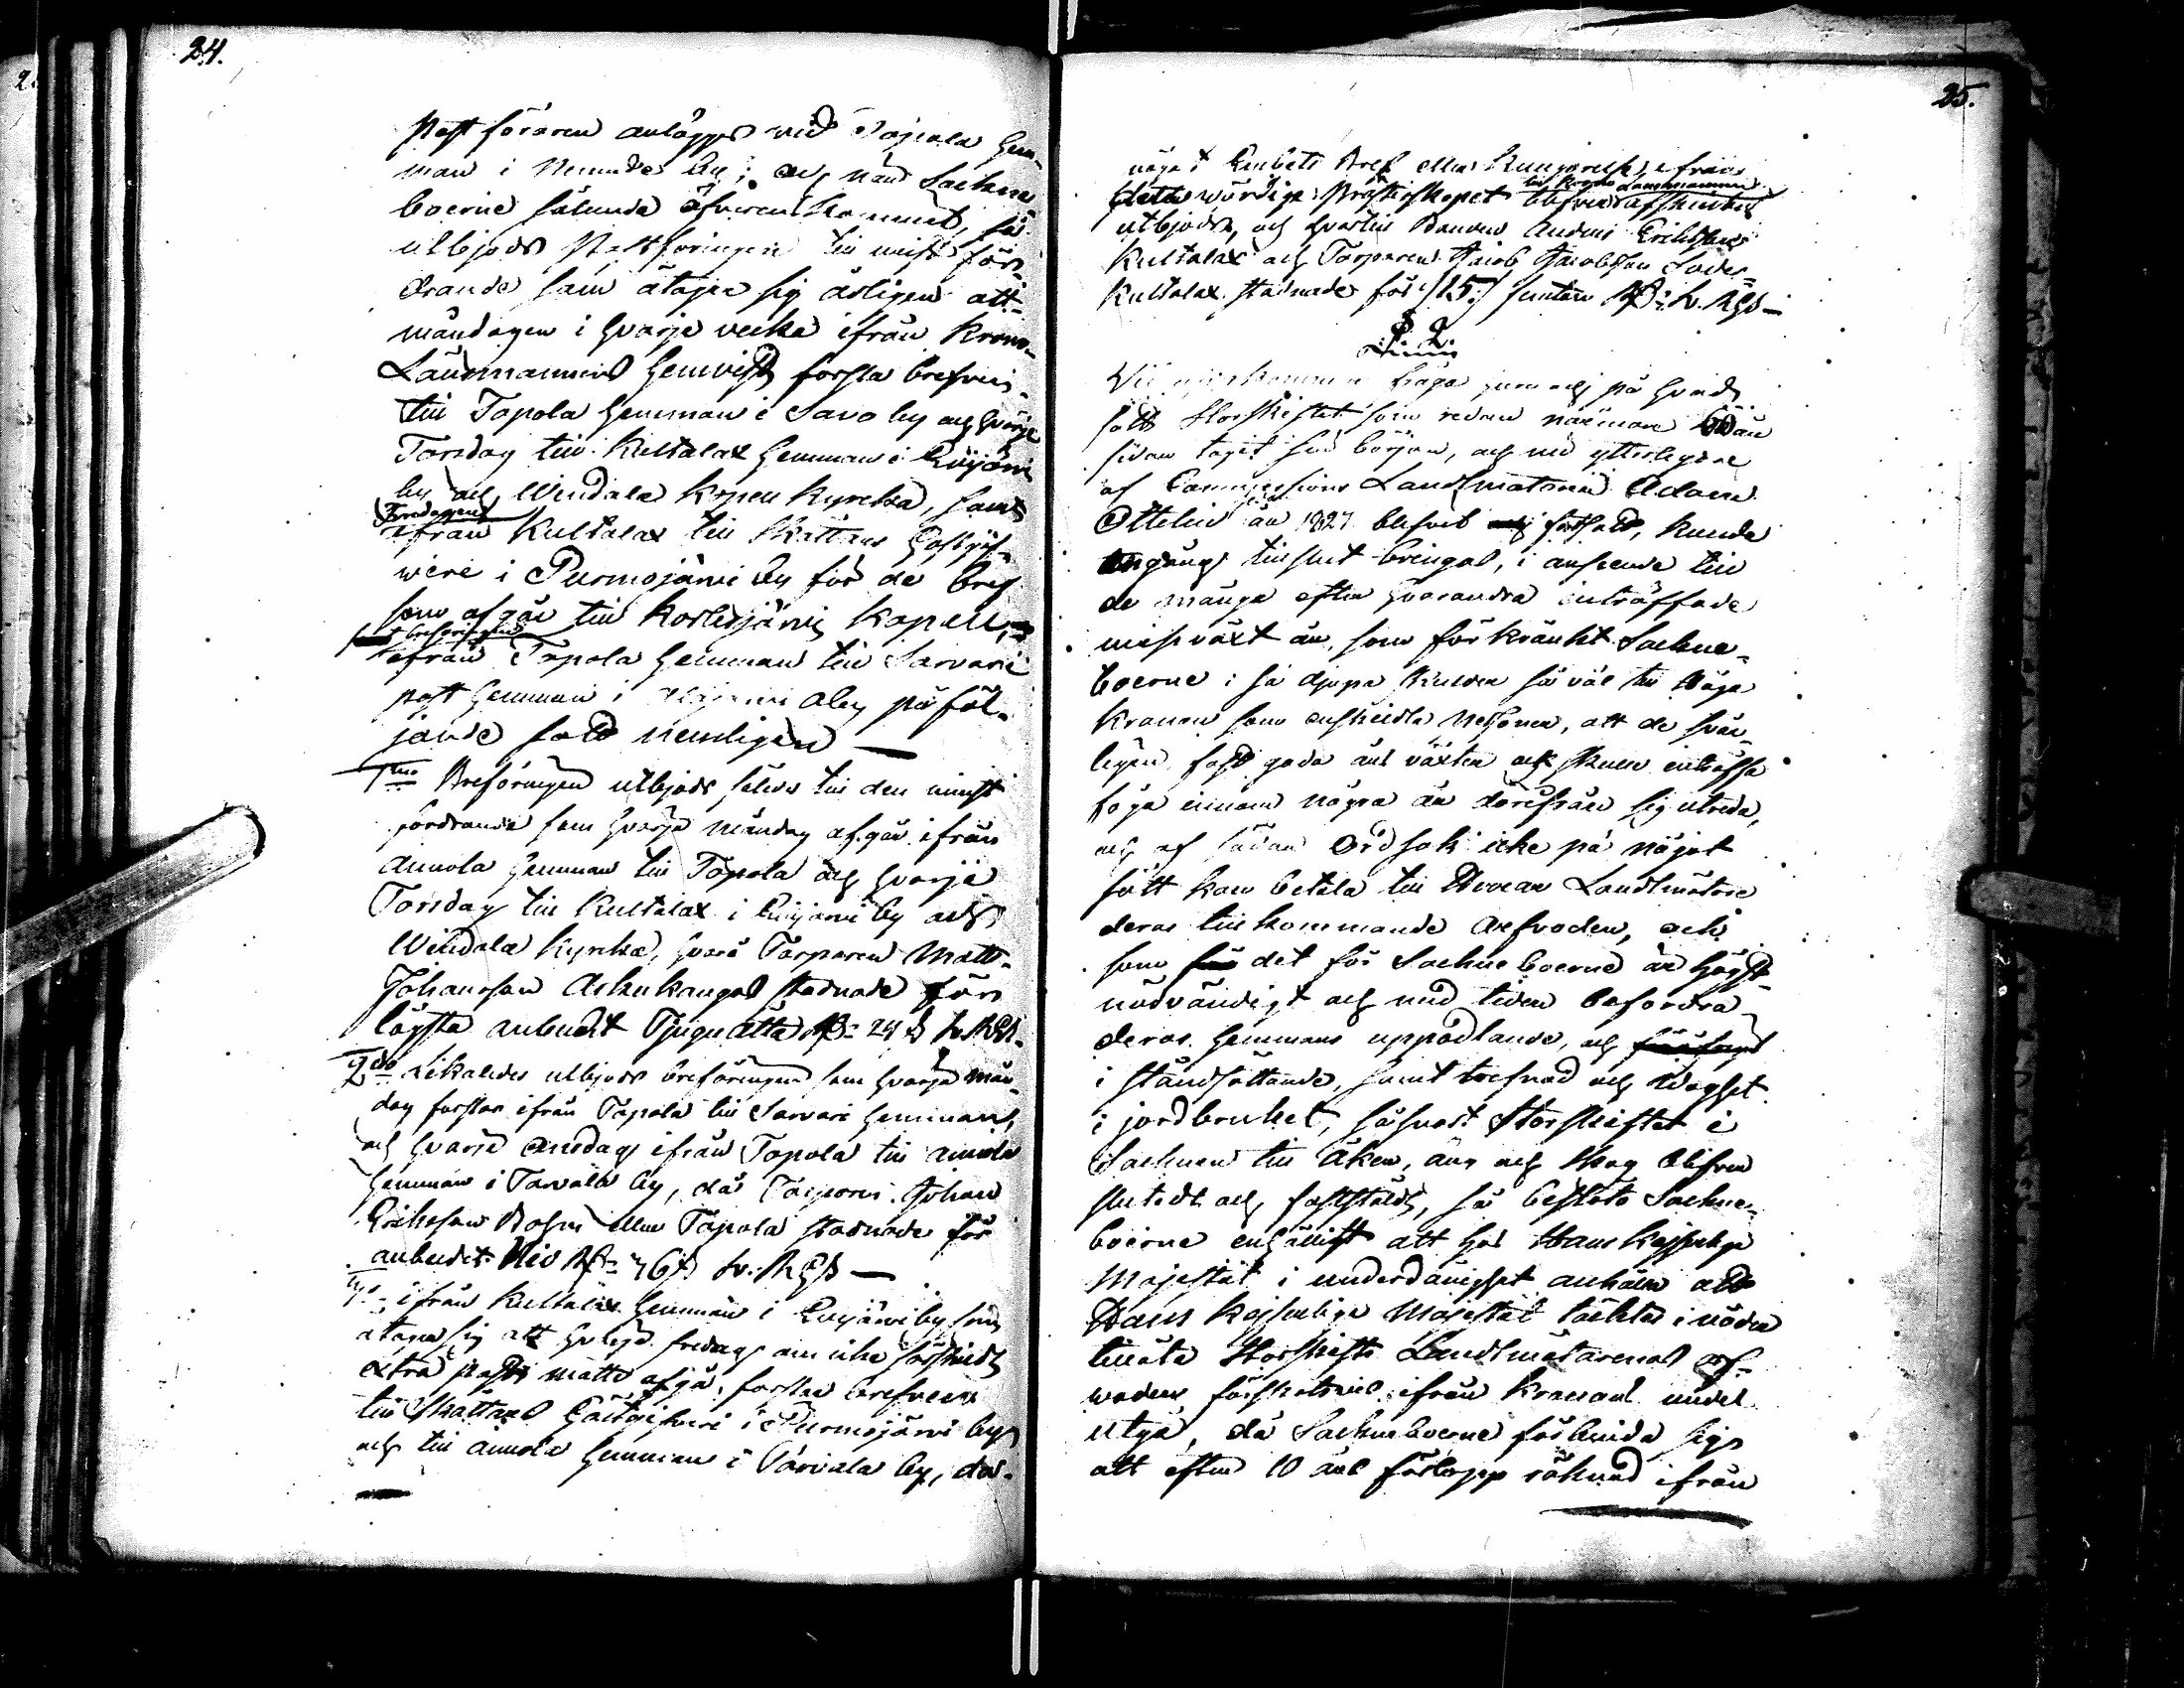 24.
Postföraren anlägges vid Tapola Hem-
man i nemnde By; och när Sockne
boerne sålunda öfverenskommit, så
utbjöds Postföringen till minst for-
drande som åtager sig årligen att
måndagen i hvarje vecka ifrån Krono-
Länsmannens Hemvist forsla brefven
till Tapola Hemman i Savo by och hvarje
Torsdag till Kultalax Hemman i Evijärvi
by och Windala Kapell Kyrcka, samt
Torsdagen
ifrån Kultalax till Skattars Gästgif-
veri i Purmojärvi by för de bref
som afgår till Kortesjärvi Kapell,
brefföringen
ifrån Tapola Hemman till Sarvari
post Hemman i Alajärvi By på föl-
jande satt nemligen —
1mo Breföringen utbjöds således till den minst
fordrande som hvarje måndag afgår ifrån
Annola Hemman till Tapola och hvarje
Torsdag till Kultalax i Evijärvi by och
Windala Kyrcka, hvars Torparen Matts
Johansson Achukangas stadnade för
lägsta anbudet Tjuguåtta
2do Likaledes utbjöds breföringen som hvarje mån-
dag forslas ifrån Tapola till Sarvari Hemman,
och hvarje onsdag ifrån Tapola till Annola
Hemman i Tarvala by, då Torparen Johan
Eriksson eller Tapola stadnade för
anbudet Nio
ifrån Kultalax Hemman i Evijärvi by som
åtager sig att hvarje fredag om icke särskildt
extra post måtte afgå, forsla brefven
till Skattars Gästgifveri i Purmojärvi by
och till Annola Hemman i Tarvala by, då
25.
något Embets Bref eller Kungörelse, ifrån
till Krono Länsmannen
Ehrevördige Prästerskapet blifver afskickad
utbjöds, och hvartill Bonden Anders Ericksson
Kultalax och Torparen Jacob Jacobsson Soder
Kultalax stadnade för /:15:/ femton
§ 2
Vid förekommen fråga huru och på hvad
sätt Storskiftet som redan närmare år
sedan tagit sin början, och med ytterligare
af Commissions Landtmätaren Adam
Ottelin år 1827 blefvet fortsatt, kunde
engång till slut bringas, i anseende till
de många efter hvarandra inträffade
missväxt år, som förkränkt Sockne-
boerne i så djupa skulder så väl till Höga
Kronan som enskildta Personer, att de svår-
ligen fast goda års växter ock skulle inträffa
föga innom några år derifrån sig utreda,
och af sådan Orsak icke på något
sätt kan betala till Herrar Landtmätare
deras tillkommande Arfvoden, och
som det för Sockneboerne är högst
nödvändigt och med tiden befordra
deras Hemmans uppodlande, och
i ståndsättande, samt trefnad och
i jordbruket, såsnart Storskiftet i
Socknen till åker, äng och skog blifver
slutadt och faststäldt, så beslöto Sockne-
boerne enhälligt att hos Hans Kejserlige
Majestät i underdånighet anhålla att
Hans Kejserlige Majestät täcktes i nåder
tillåta Storskifts Landtmätarenas arf-
voden förskotsvis ifrån Kronans medel
utgå, då Sockneboerne förbinda sig
att efter 10 års förlopp räknad ifrån